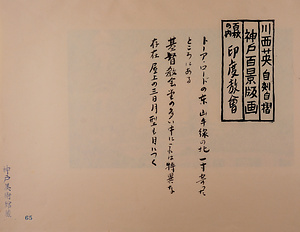 川西英 自刻自摺
神戸百景版画
百景の内 印度教会
トーアロードの東 山手線の北 一寸入った
ところにある
基督教会堂の多い中にこれは特異な
存在 屋上の三日月型も目につく
65